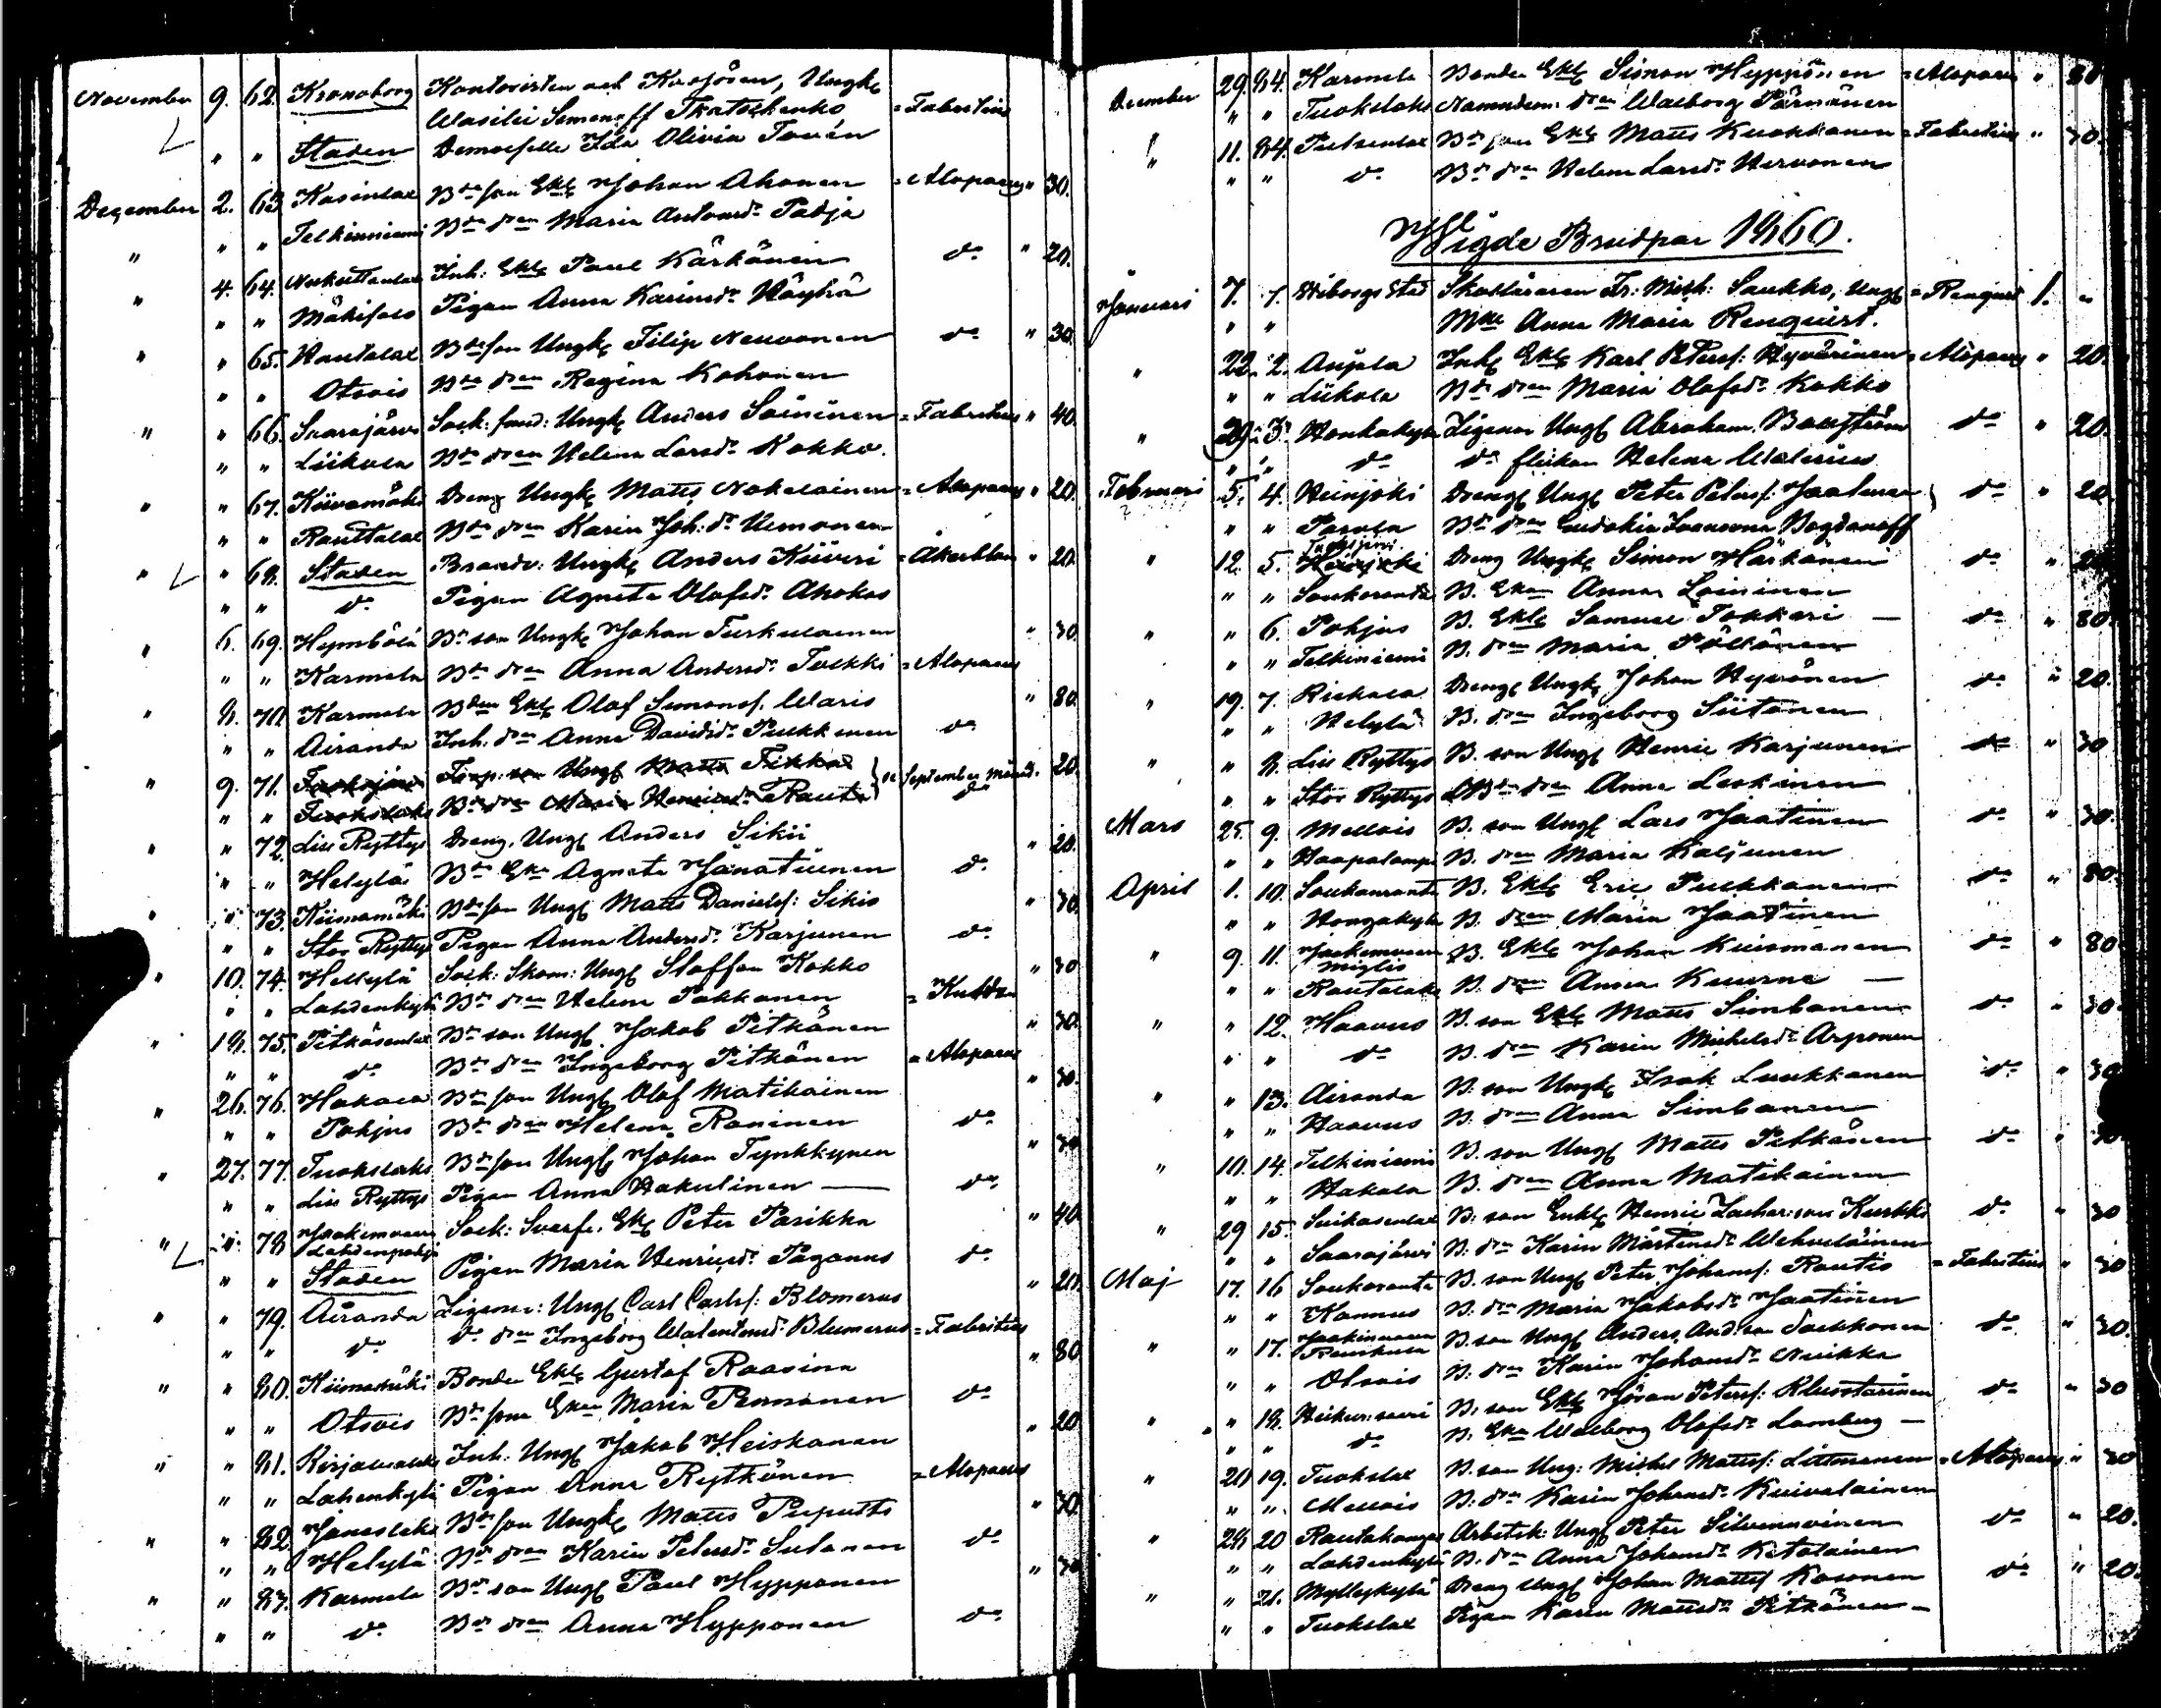 November 9. 62. Kronoborg Kontoristen och Kasören, Ungk.
Wasilii Semenoff Tkatschenko = Fabritius
" " Staden Demoiselle Ida Olivia
December 2. 63. Kasinlax Bde son Ekl Johan Ahonen = Alopaeus " 30.
" " " Telkinniemi Bde dren Maria Antonsdr Padja
" 4. 64. Inh: Ekl Paul Kärkänen do " 20.
" " Mäkisalo Pigan Anna Karinsdr Häyhä
" " 65. Rautalax Bde son Ungk Filip Neuvonen do " 30
" " Otsois Bde dren Regina Kohonen
" " 66. Saarajärvi Sock: Ungk Anders Soininen = Fabritius " 40.
" " Liikola Bde dren Helena Larsdr Kokko.
" " 67. Kiivamäki Dreng Ungk Matts Nokelainen = Alopaeus " 20.
" " Rauttalax Bde dren Karin Joh:dr Hemonen
" " 68. Staden Ungk Anders Kiiveri = Åkerblom " 20.
" " do Pigan Agneta Olofsdr Ahokas
" 6. 69. Hympölä Bde son Ungk Johan Turkulainen " 30
" " Karmala Bde dren Anna Andersdr Tuckki = Alopaeus
" 8. 70. Karmala Bden Ekl Olof Simonsf. Waris " 80.
" " Airanda Inh: dren Anna Davidsdr Pulkkinen do
" 9. 71. Ungk Matts Tikka se September månad. 20.
" " Tuokslaks Bde dren Maria Henricsdr Rautio do
" " 72. Lill Ryttys Dreng. Ungk Anders Sikiö " 20.
" " Helylä Bde Eka Agneta Jänatuinen do
" " 73. Kiimamäki Bde son Ungk Matts Danielsf: Sikiö " 30.
" " Stor Ryttys Pigan Anna Andersdr Karjunen do
" 10. 74. Helylä Sock: Skom: Ungk Staffan Kokko " 30
" " Lahdenkylä Bde dren Helena Pakkanen = Kutvon
" 18. 75. Pitkäsenlax Bde son Ungk Jakob Pitkänen " 30.
" " do Bde dren Ingeborg Pitkänen = Alopaeus
" 26. 76. Hakala Bde son Ungk Olof Matikainen " 30.
" " Pohjus Bde dren Helena Roninen do
" 27. 77. Tuokslaks Bde son Ungk Johan Tynkkynen " 30
" " Lill Ryttys Pigan Anna Hakulinen — do
" " 78 Jaakimvaara
Lahdenpohja Sock: Svarfv. Ekl Peter Parikka " 40
" " Staden Pigan Maria Henricsdr Paganus do
" " 79. Airanda Zigenar: Ungk Carl Carlsf: Blomerus " 20.
" " do do dren Ingeborg Walentinsdr Blumerus = Fabritius
" " 80. Kiimamäki Bonden Ekl Gustaf Raasina " 80
" " Otsois Bde Ekan Maria Permanen do
" " 81. Kirjavalaks Inh: Ungk Jakob Heiskanen " 20
" " Lahenkylä Pigan Anna Rytkönen = Alopaeus
" " 82. Janaslaks Bde son Ungk Matts Puputti " 30.
" " Helylä Bde dren Karin Petersdr Sulanen do
" " 83. Karmala Bde son Ungk Paul Hypponen " 30
" " do Bde dren Anna Hypponen do
December 29. 84. Karmala Bonden Ekl Simon Hyppönen = Alopaeus " 80
" " Tuokslaks dren Walborg Pärnänen
" 11. 84. Putsenlax Bde son Ekl Matts Kuokkanen = Fabritius " 30.
" " do Bde dren Helena Larsdr Hirvonen
Wigde Brudpar 1860.
Januari 7. 1. Wiborgs Stad Skolläraren Fr: Mich: Saukko, Ungk = Renquist 1. "
" " Mlle Anna Maria Renquist.
" 22. 2. Anjala Inh Ekl Karl Petersf: Hyvärinen = Alopaeus " 20.
" " Liikola Bde dren Maria Olofsdr Kokko
" 29. 3. Honkakylä Zigenar Ungk Abraham Bollström do " 20.
" " do do flickan Helena Walerius
Februari 5. 4. Heinjoki Drengk Ungk Peter Petersf: do " 20
" " Parola Bde dren Eudokia Ivanovna Bogdanoff
" 12. 5. Dreng Ungk Simon Härkönen do " 20
" " Soukoranda B. Ekan Anna Loininen
" " 6. Pohjus B. Ekl Samuel Tokkari — do " 80.
" " Telkiniemi B. dren Maria Pöllänen
" 19. 7. Rickala Drengk Ungk Johan Hyvönen do " 20.
" " Helylä B. dren Ingeborg Siitonen
" " 8. Lill Ryttys B. son Ungk Henric Karjunen do " 30
" " Stor Ryttys B. dren Anna Leskinen
Mars 25. 9. Mellois B. son Ungk Lars Jaatinen do " 30.
" " Haapalampi B. dren Maria Kaljunen
April 1. 10. Soukanranta B. Ekl Eric Pulkkanen do " 80.
" " Honzakylä B. dren Maria Jaatinen
" 9. 11. Jaakimvaara
Miglis B. Ekl Johan Kuismanen do " 80
" " Rautalaks B. dren Anna Kuurna —
" " 12. Haavus B. son Ekl Matts Simbanen do " 30.
" " do B. dren Karin Michelsdr Arponen
" " 13. Airanda B. son Ungk Isak Luukkanen do " 30
" " Haavus B. dren Anna Simbanen
" 10. 14. Telkiniemi B. son Ungk Matts Pitkänen do " 30.
" " Hakala B. dren Anna Matikainen
" 29 15. Suikasenlax B: son Enkl Henric Zacharison Kurkki do " 30
" " Saarajärvi B: dren Karin Mårtensdr Wehviläinen
Maj 17. 16 Soukoranta B. son Ungk Peter Johansf: Rautio = Fabritius " 30
" " Kannus B. dren Maria Jakobsdr Jaatinen
" " 17. Jaakimvaara B. son Ungk Anders And.son do " 30.
" " Otsois B: dren Karin Johansdr Nuikka
" " 18. B. son Ekl Jöran Petersf: Klusstarinen do " 30
" " do B. Eka Walborg Olofsdr Lamberg —
" 20 19. Tuokslax B. son Ung: Michel Mattsf: Littmanen = Alopaeus " 30
" " Mellois B. dren Karin Johansdr Kuivalainen
" 28 20 Rautakangas Arbetsk: Ungk Peter Silvennoinen do " 20.
" " Lahdenkylä B. dren Anna Johansdr Ketolainen
" " 21. Myllykylä Dreng Ungk Johan Mattsf Kosonen do " 20.
" " Tuokslax Pigan Karin Mattsdr Pitkänen —